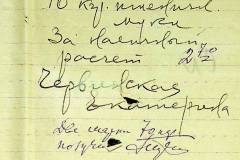 10 кгр. пшенич.
муки
За наличный
расчет 2 70
Червинская
Екатерина
Две
получил